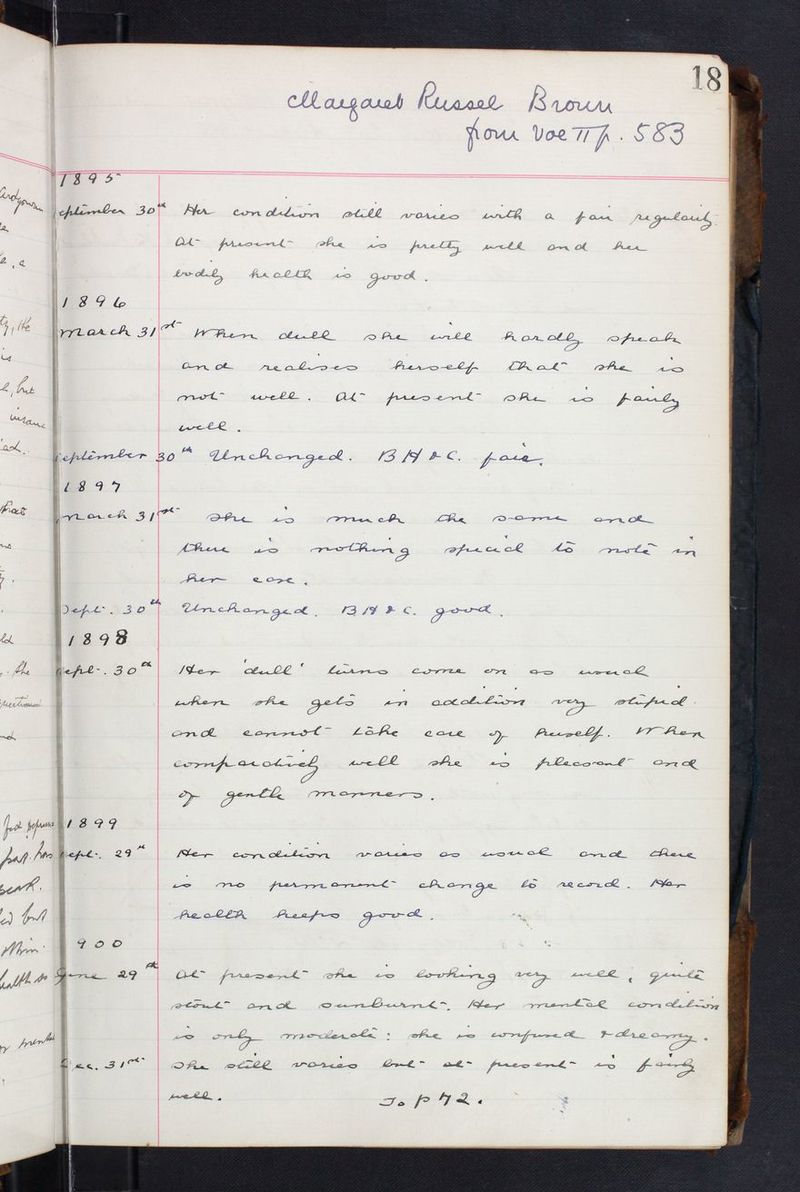 18
Margaret Russel Brown
from Vol II p. 583
1895
eptember 30th Her condition still varies with a fair regularity.
At present she is pretty well and her
bodily health is good.
1896
March 31st When dull she will hardly speak
and realises herself that she is
not well. At present she is fairly
well.
eptember 30th Unchanged. B H & C. fair.
1897
March 31st She is much the same and
there is nothing special to note in
her case.
Sept. 30th Unchanged. B H & C. good.
1898
Sept. 30th Her 'dull' turns come on as usual
when she gets in addition very stupid
and cannot take care of herself. When
comparatively well she is pleasant and
of gentle manners.
1899
Sept. 29th Her condition varies as usual and there
is no permanent change to record. Her
health keeps good.
900
June 29th At present she is looking very well, quite
stout and sunburnt. Her mental condition
is only moderate: she is confused & dreamy.
Dec. 31st She still varies but at present is fairly
well. To p 72.